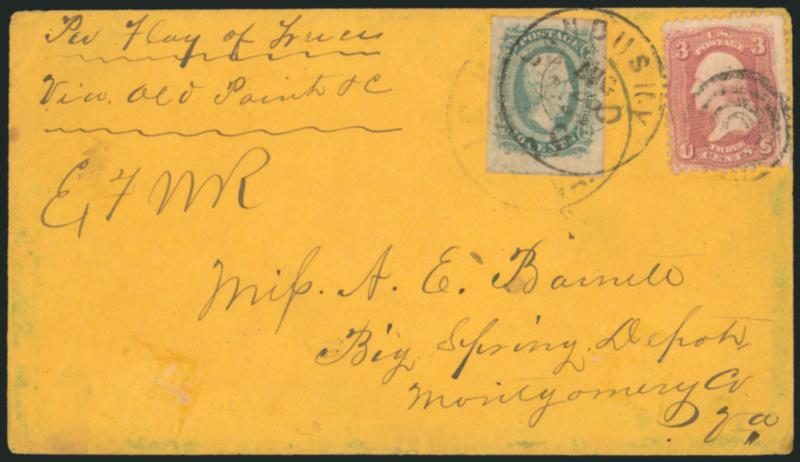 Per Flag of Truce
Via. Old Point &C
E, F W R
Miss. A. E. Barnett
Big Spring Depot,
Montgomery Co
Va
POSTAGE
CENTS
SANDUSKY
3 U.S. 3
POSTAGE
THREE
U CENTS S